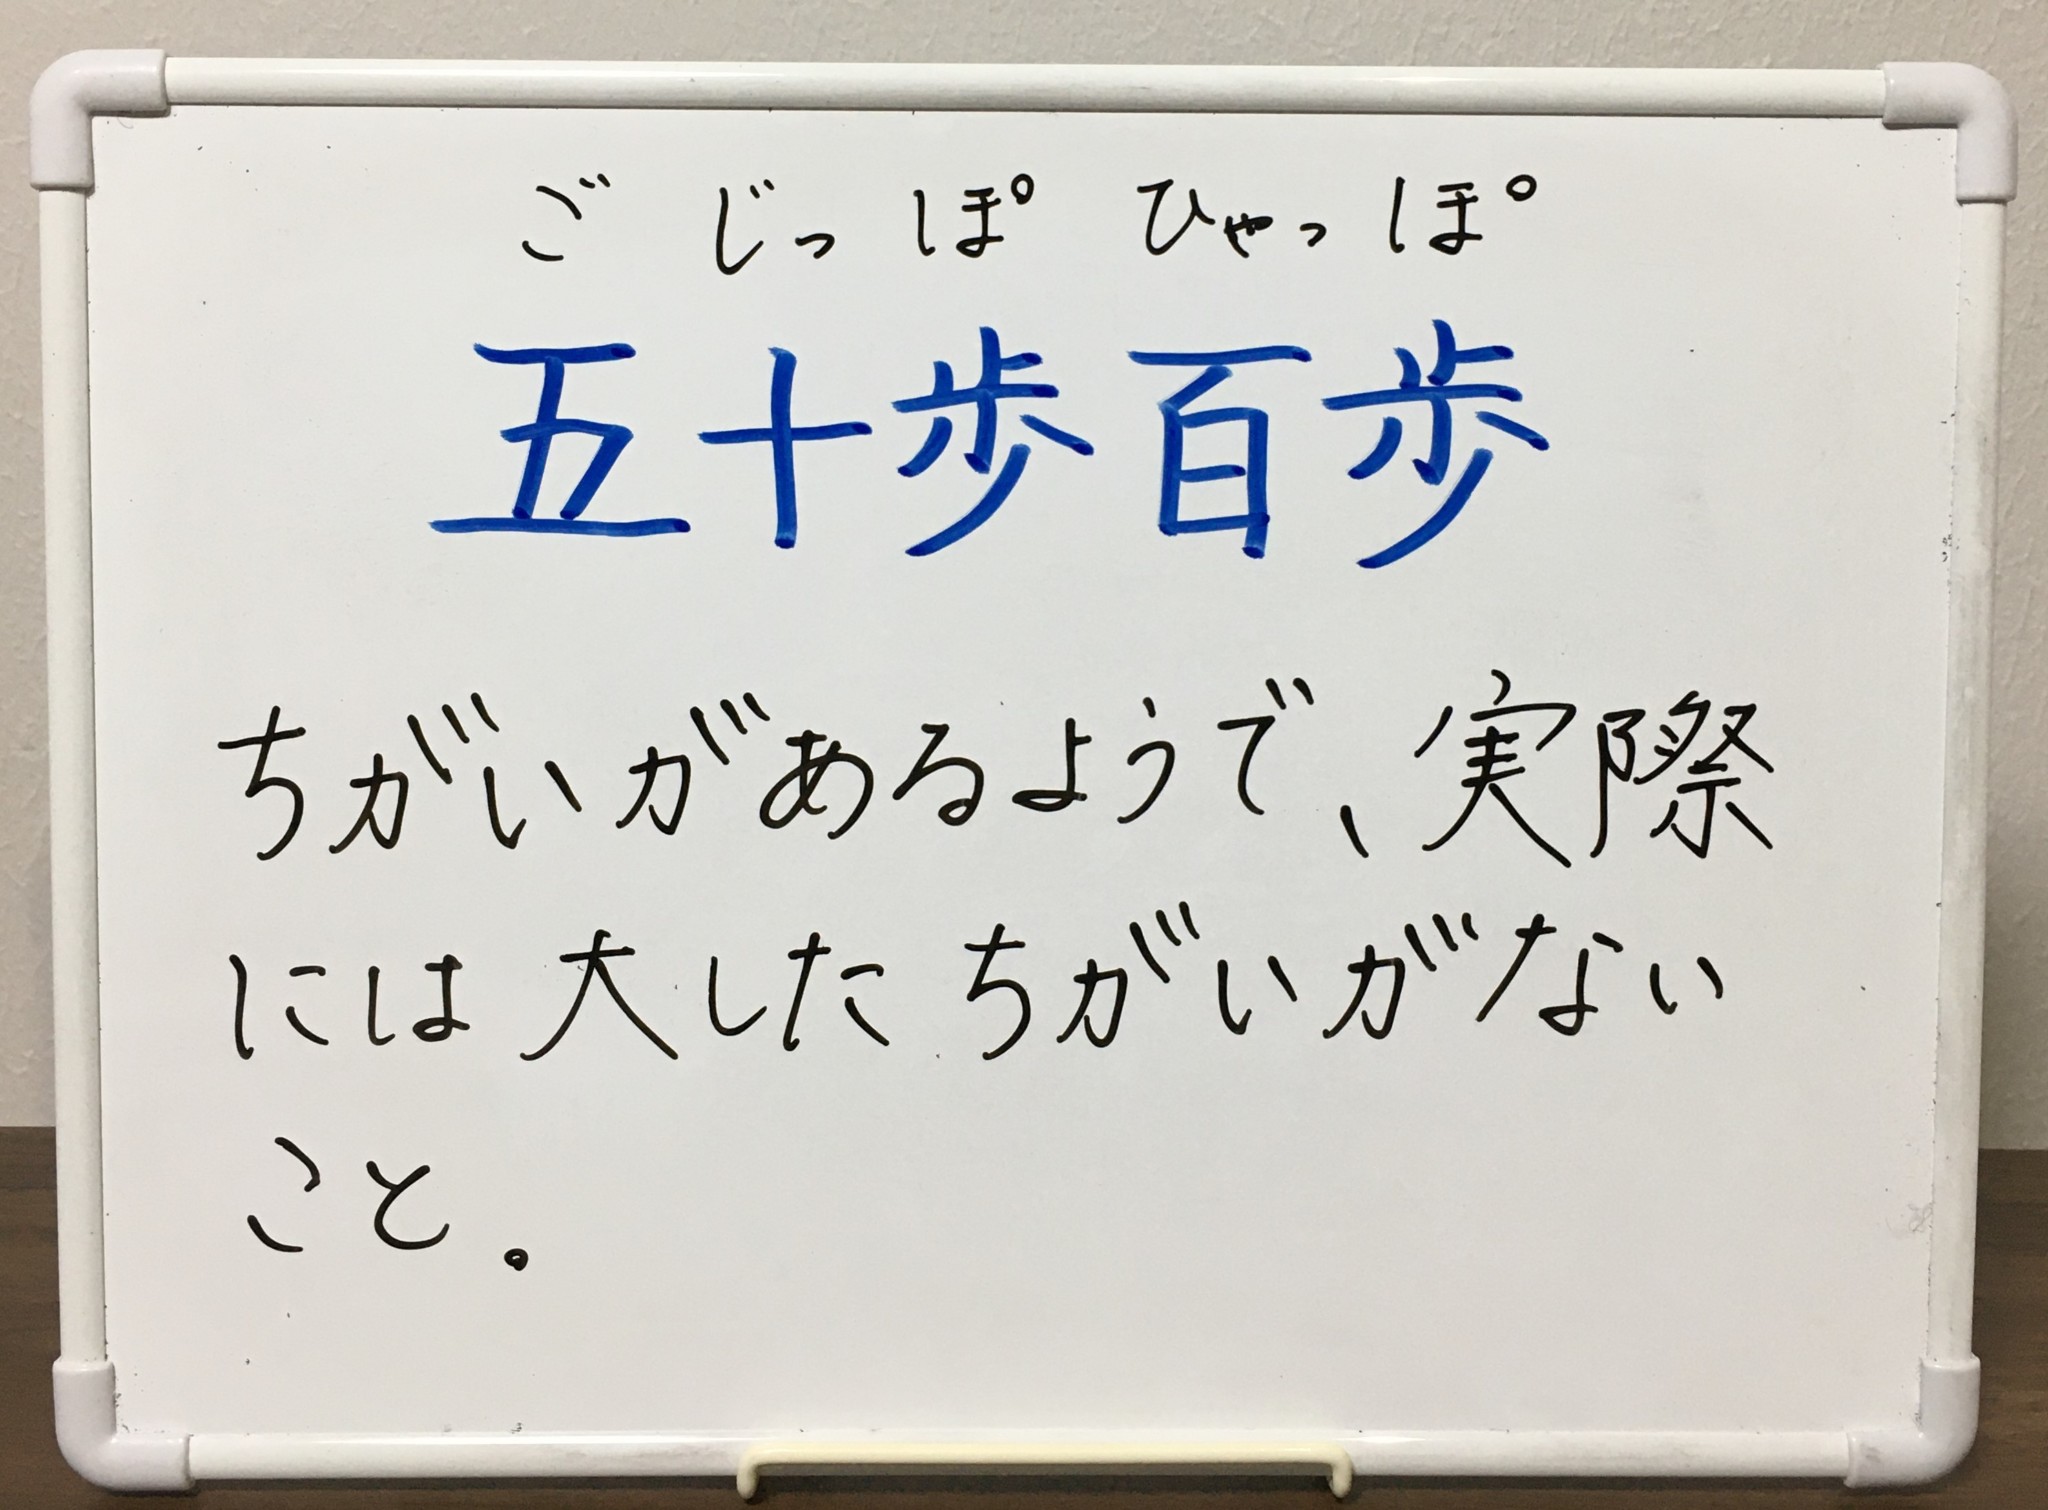 ごじっぽひゃっぽ
五十歩百歩
ちがいがあるようで、実際
には大したちがいがない
こと。